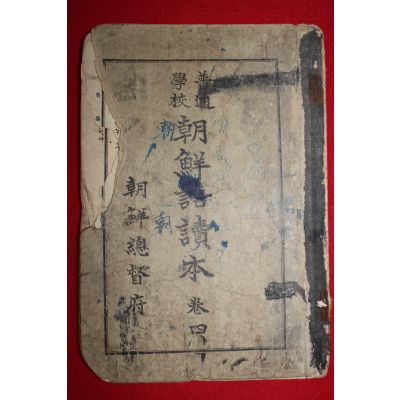 普通
學校
朝鮮語讀本 卷四
朝鮮總督府
朝
朝